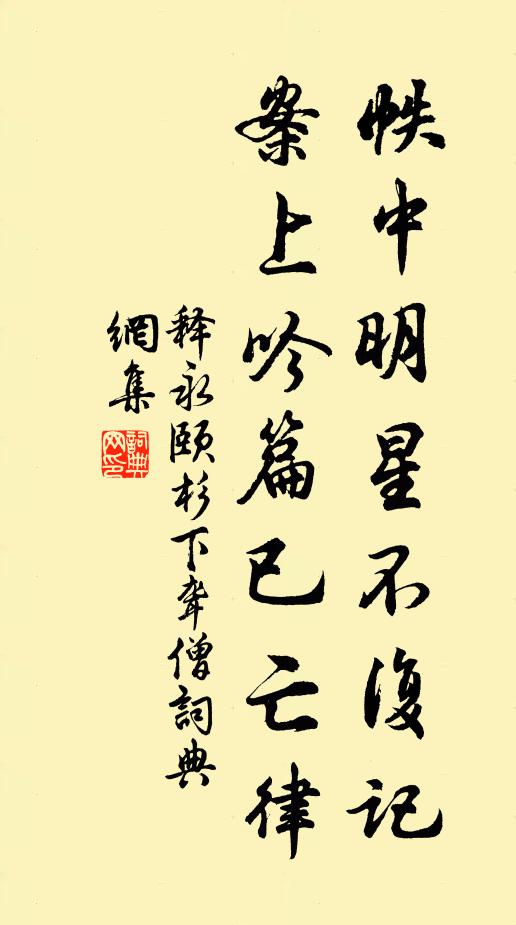 帙中明星不復记
案上吟篇已亡律
释永颐杉下聋僧詞典
網集
詞典
网印